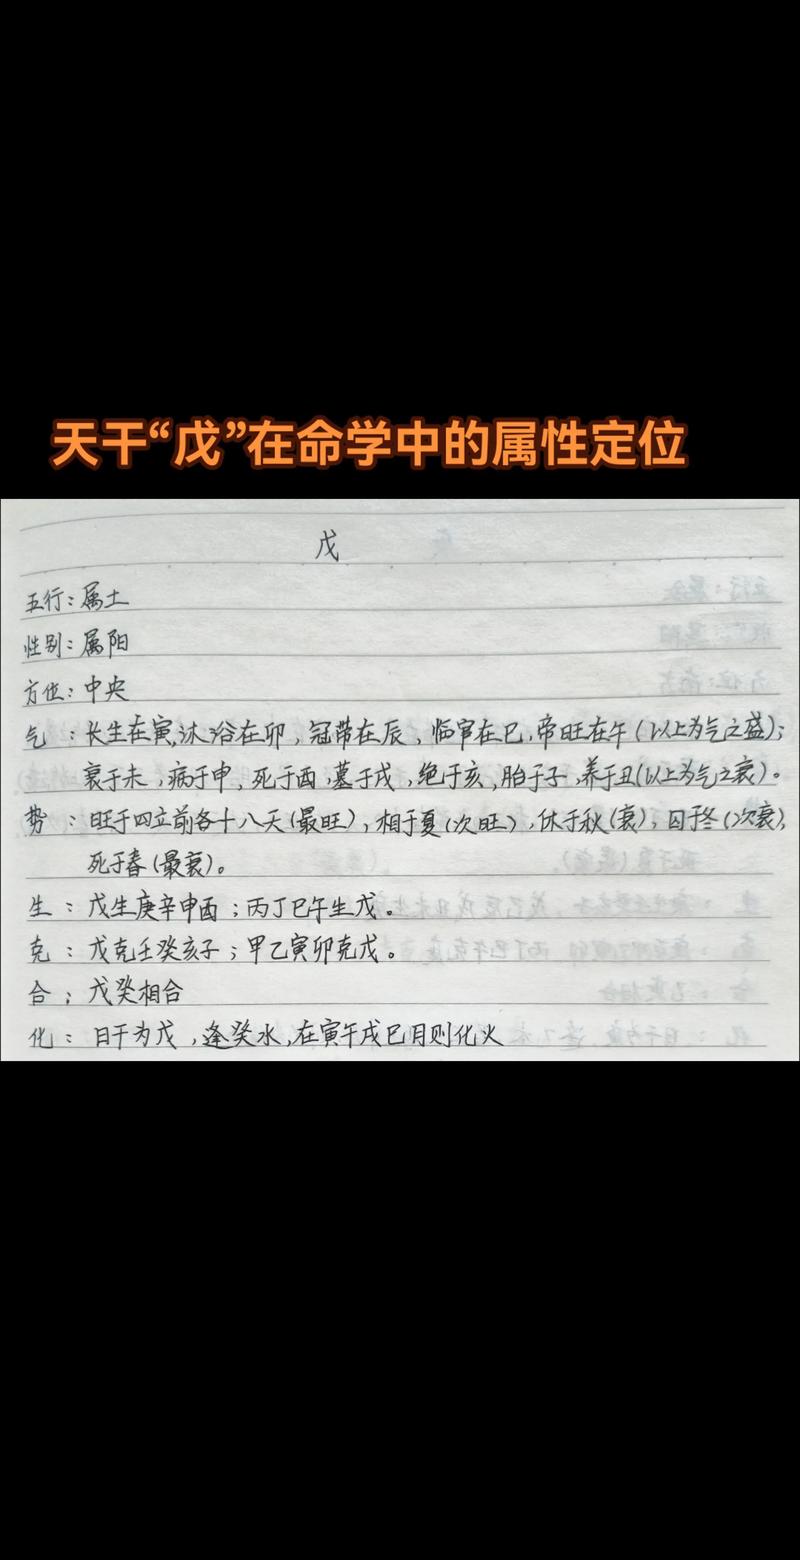 天干“戊”在命学中的属性定位
戊
五行：属土
性别：属阳
方位：中央
气：长生在寅，沐浴在卯，冠带在辰，临官在巳，帝旺在午（以上为气之盛）；
衰于未，病于申，死于酉，墓于戌，绝于亥，胎于子，养于丑（以上为气之衰）。
势：旺于四立前各十八天（最旺），相于夏（次旺），休于秋（衰），囚于冬（次衰），
死于春（最衰）。
生：戊生庚辛申酉；丙丁巳午生戊。
克：戊克壬癸亥子；甲乙寅卯克戊。
合；戊癸相合
化：日干为戊，逢癸水，在寅午戌巳月则化火